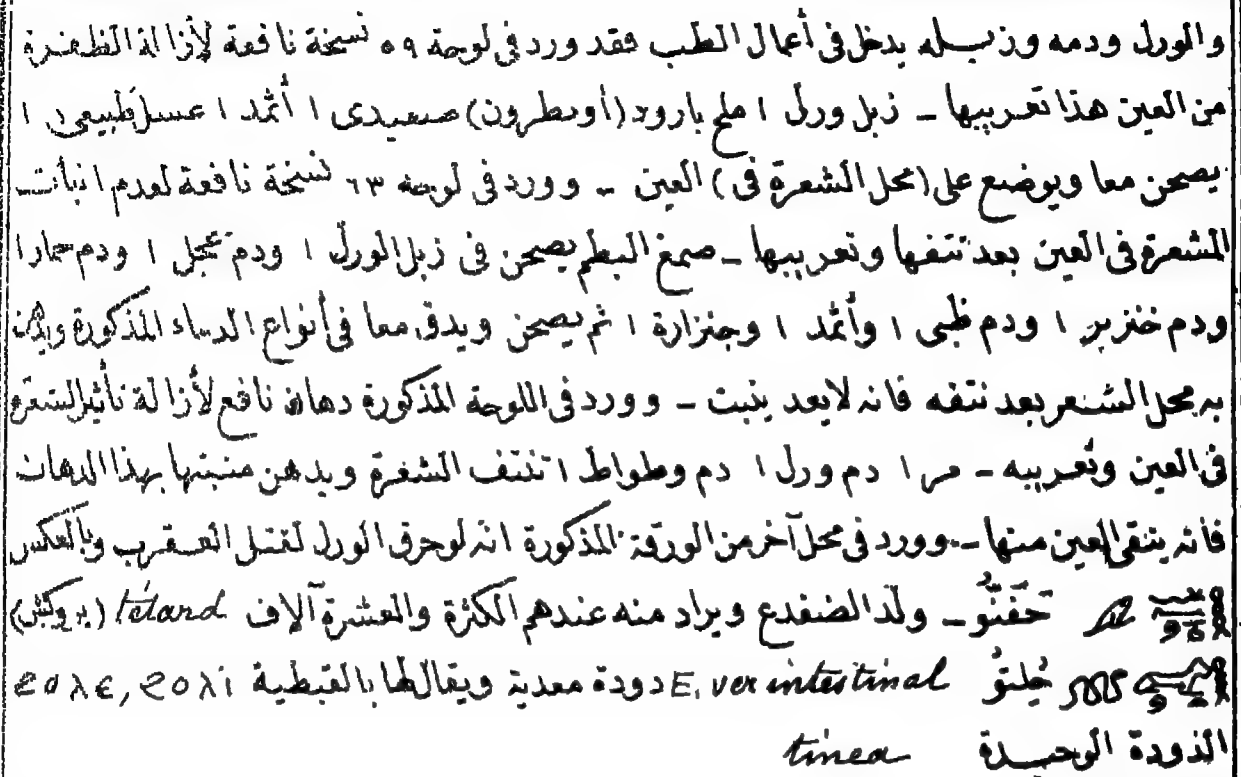 والورل ودمه وزبله يدخل فى أعمال الطب فقد ورد فى لوحة ٥٩ نسخة نافعة لأزالة الظفرة
من العين هذا تعريبها - زبل ورل ١ ملح بارود (أونطرون) صعيدى ١ أثمد ١ عسل طبيعى ١
يصحن معا ويوضع على (محل الشعرة فى) العين - وورد فى لوحة ٦٣ نسخة نافعة لعدم انبات
الشعرة فى العين بعد نتفها وتعريبها - صمغ البطم يصحن فى زبل الورل ١ ودم عجل ١ ودم حمار ١
ودم خنزير ١ ودم ظبى ١ وأثمد ١ وجنزارة ١ ثم يصحن ويدق معا فى أنواع الدماء المذكورة ويدهن
به محل الشعر بعد نتفه فانه لايعد ينبت - وورد فى اللوحة المذكورة دهان نافع لأزالة تأثير الشعرة
فى العين وتعريبه - مر ١ دم ورل ١ دم وطواط ١ تنتف الشعرة ويدهن منبتها بهذا الدهان
فانه ينقى العين منها - وورد فى محل آخر من الورقة المذكورة انه لو حرق الورل لقتل العقرب وبالعكس
حَفَنُّو - ولد الضفدع ويراد منه عندهم الكثرة والعشرة آلاف tétard (بروكش)
E. ver intestinal دودة معدية ويقال لها بالقبطية ϩⲟⲗⲓ, ϩⲟⲗⲉ
الدودة الوحيدة tinea